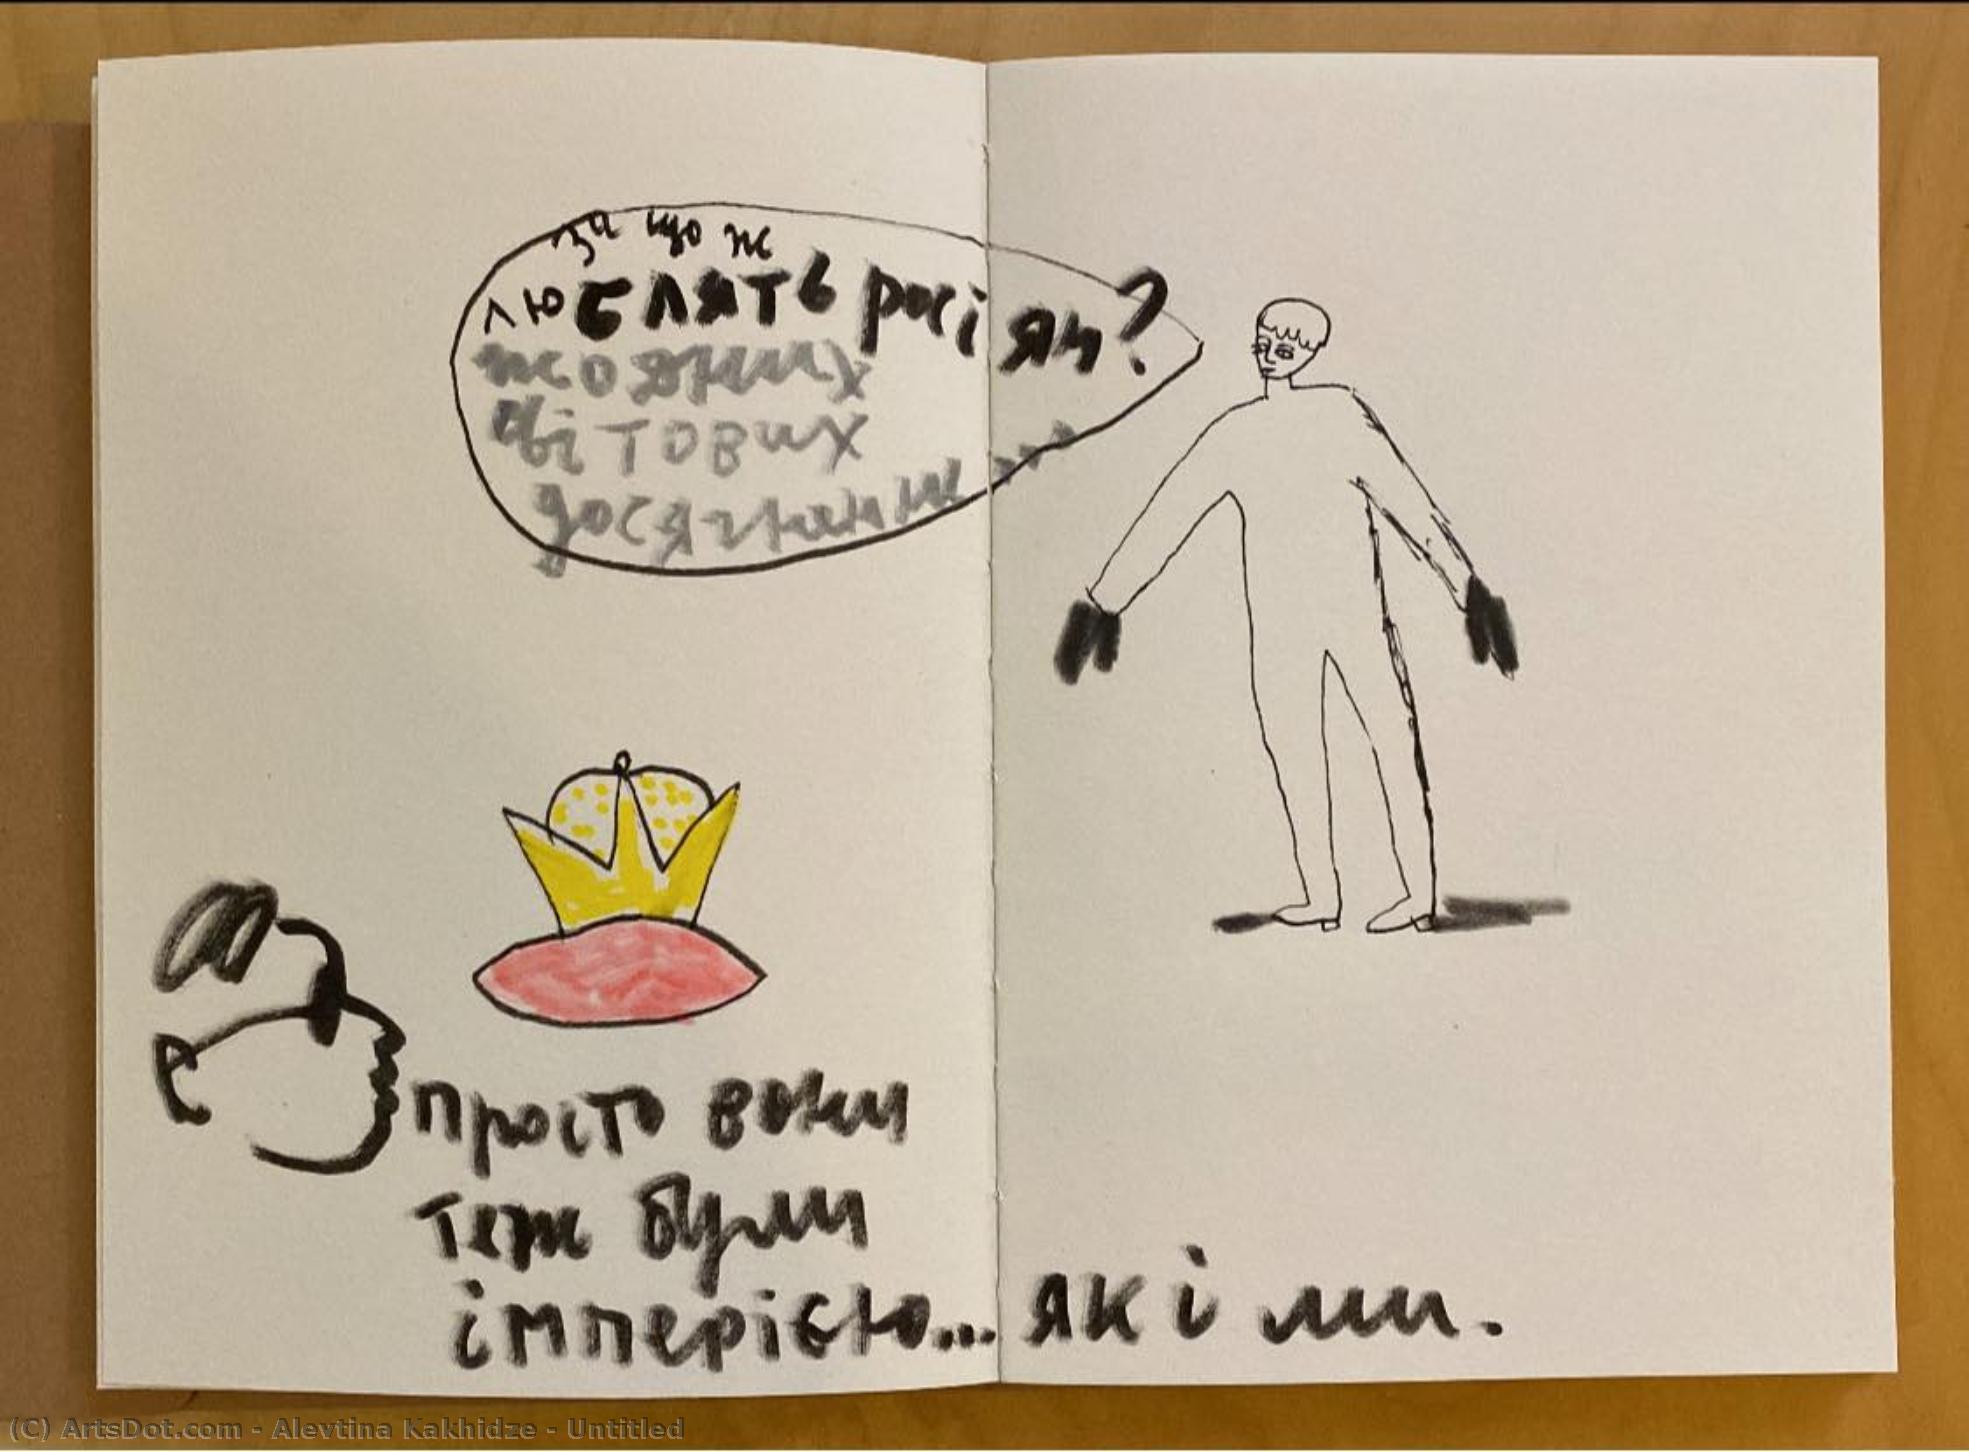 за що ж
люблять росіян?
жодних
світових
досягнень
просто вони
теж були
імперією... як і ми.
(C) ArtsDot.com - Alevtina Kakhidze - Untitled